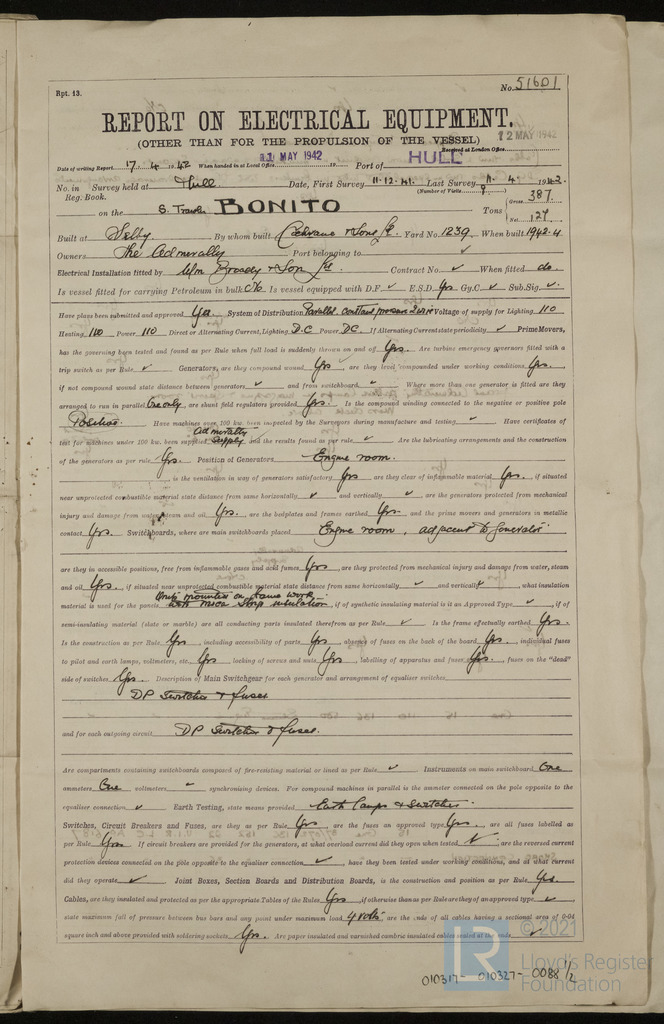 Rpt. 13.
No. 51601
REPORT ON ELECTRICAL EQUIPMENT.
(OTHER THAN FOR THE PROPULSION OF THE VESSEL)
12 MAY 1942
Received at London Office
Date of writing Report 17. 4 1942 When handed in at Local Office MAY 1942 19 Port of HULL
No. in Survey held at Hull Date, First Survey 11.12.41. Last Survey 4. 1942.
Reg. Book. (Number of Visits 9)
on the S. Trawler BONITO Tons { Gross 387.
Net 127
Built at Selby By whom built Cochrane & Sons Ltd. Yard No. 1239. When built 1942.4
Owners The Admiralty Port belonging to ✓
Electrical Installation fitted by Wm Broady & Son Ltd Contract No. ✓ When fitted do.
Is vessel fitted for carrying Petroleum in bulk No Is vessel equipped with D.F. ✓ E.S.D. Yes Gy.C. ✓ Sub.Sig. ✓.
Have plans been submitted and approved Yes System of Distribution Parallel constant pressure 2 wire Voltage of supply for Lighting 110
Heating 110 Power 110 Direct or Alternating Current, Lighting D.C Power DC. If Alternating Current state periodicity ✓ Prime Movers,
has the governing been tested and found as per Rule when full load is suddenly thrown on and off Yes. Are turbine emergency governors fitted with a
trip switch as per Rule ✓ Generators, are they compound wound Yes, are they level compounded under working conditions Yes.
if not compound wound state distance between generators ✓ and from switchboard ✓ Where more than one generator is fitted are they
arranged to run in parallel One only, are shunt field regulators provided Yes. Is the compound winding connected to the negative or positive pole
Positive. Have machines over 100 kw. been inspected by the Surveyors during manufacture and testing ✓ Have certificates of
test for machines under 100 kw. been supplied Admiralty supply and the results found as per rule ✓ Are the lubricating arrangements and the construction
of the generators as per rule Yes. Position of Generators Engine room.
is the ventilation in way of generators satisfactory Yes are they clear of inflammable material Yes. if situated
near unprotected combustible material state distance from same horizontally ✓ and vertically ✓ are the generators protected from mechanical
injury and damage from water, steam and oil Yes. are the bedplates and frames earthed Yes. and the prime movers and generators in metallic
contact Yes. Switchboards, where are main switchboards placed Engine room, adjacent to generator
are they in accessible positions, free from inflammable gases and acid fumes Yes are they protected from mechanical injury and damage from water, steam
and oil Yes, if situated near unprotected combustible material state distance from same horizontally ✓ and vertically ✓, what insulation
material is used for the panels Units mounted on frame work with mica strip insulation, if of synthetic insulating material is it an Approved Type ✓, if of
semi-insulating material (slate or marble) are all conducting parts insulated therefrom as per Rule ✓ Is the frame effectually earthed Yes.
Is the construction as per Rule Yes, including accessibility of parts Yes, absence of fuses on the back of the board Yes, individual fuses
to pilot and earth lamps, voltmeters, etc. Yes locking of screws and nuts Yes, labelling of apparatus and fuses Yes, fuses on the "dead"
side of switches Yes. Description of Main Switchgear for each generator and arrangement of equaliser switches
DP Switches & fuses
and for each outgoing circuit DP Switches & fuses.
Are compartments containing switchboards composed of fire-resisting material or lined as per Rule ✓ Instruments on main switchboard One
ammeters, One voltmeters, ✓ synchronising devices. For compound machines in parallel is the ammeter connected on the pole opposite to the
equaliser connection ✓ Earth Testing, state means provided Earth lamps & Switches.
Switches, Circuit Breakers and Fuses, are they as per Rule Yes are the fuses an approved type Yes, are all fuses labelled as
per Rule Yes If circuit breakers are provided for the generators, at what overload current did they open when tested ✓ are the reversed current
protection devices connected on the pole opposite to the equaliser connection ✓ have they been tested under working conditions, and at what current
did they operate ✓ Joint Boxes, Section Boards and Distribution Boards, is the construction and position as per Rule Yes.
Cables, are they insulated and protected as per the appropriate Tables of the Rules Yes, if otherwise than as per Rule are they of an approved type ✓
state maximum fall of pressure between bus bars and any point under maximum load 4 volts, are the ends of all cables having a sectional area of 0·04
square inch and above provided with soldering sockets Yes. Are paper insulated and varnished cambric insulated cables sealed at the ends ✓
© 2021
LR
Lloyd's Register
Foundation
010317-010327-0088 1/2